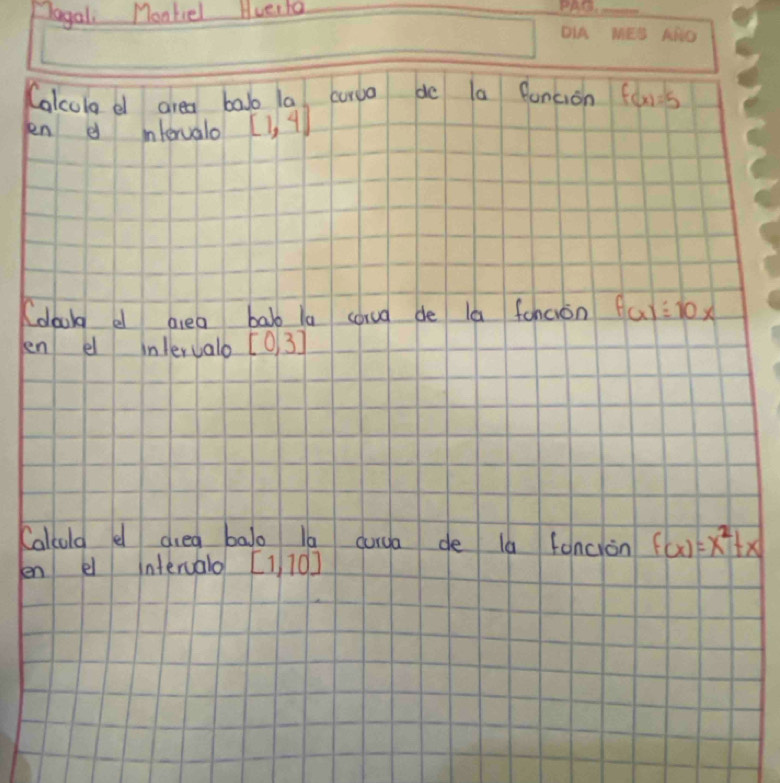 Magali Montiel Huerta
PAG.
DIA MES AÑO
Calcula el area bajo la curva de la función f(x)=5
en el intervalo [1,4]
Calcula el area bajo la curva de la función f(x)=10x
en el intervalo [0,3]
Calcula el area bajo la curva de la función f(x)=x²+x
en el intervalo [1,10]